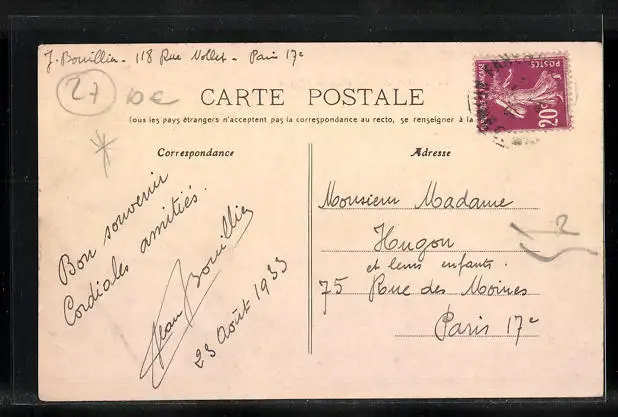 J. Bouillier - 118 Rue Nollet - Paris 17e
27
CARTE POSTALE
Tous les pays étrangers n'acceptent pas la correspondance au recto, se renseigner à la
POSTES
20c
Correspondance
Adresse
Bon souvenir
Cordiales amitiés.
Jean Bouillier
23 Août 1933
Monsieur Madame
Hugon
et leurs enfants.
75 Rue des Moines
Paris 17e
2